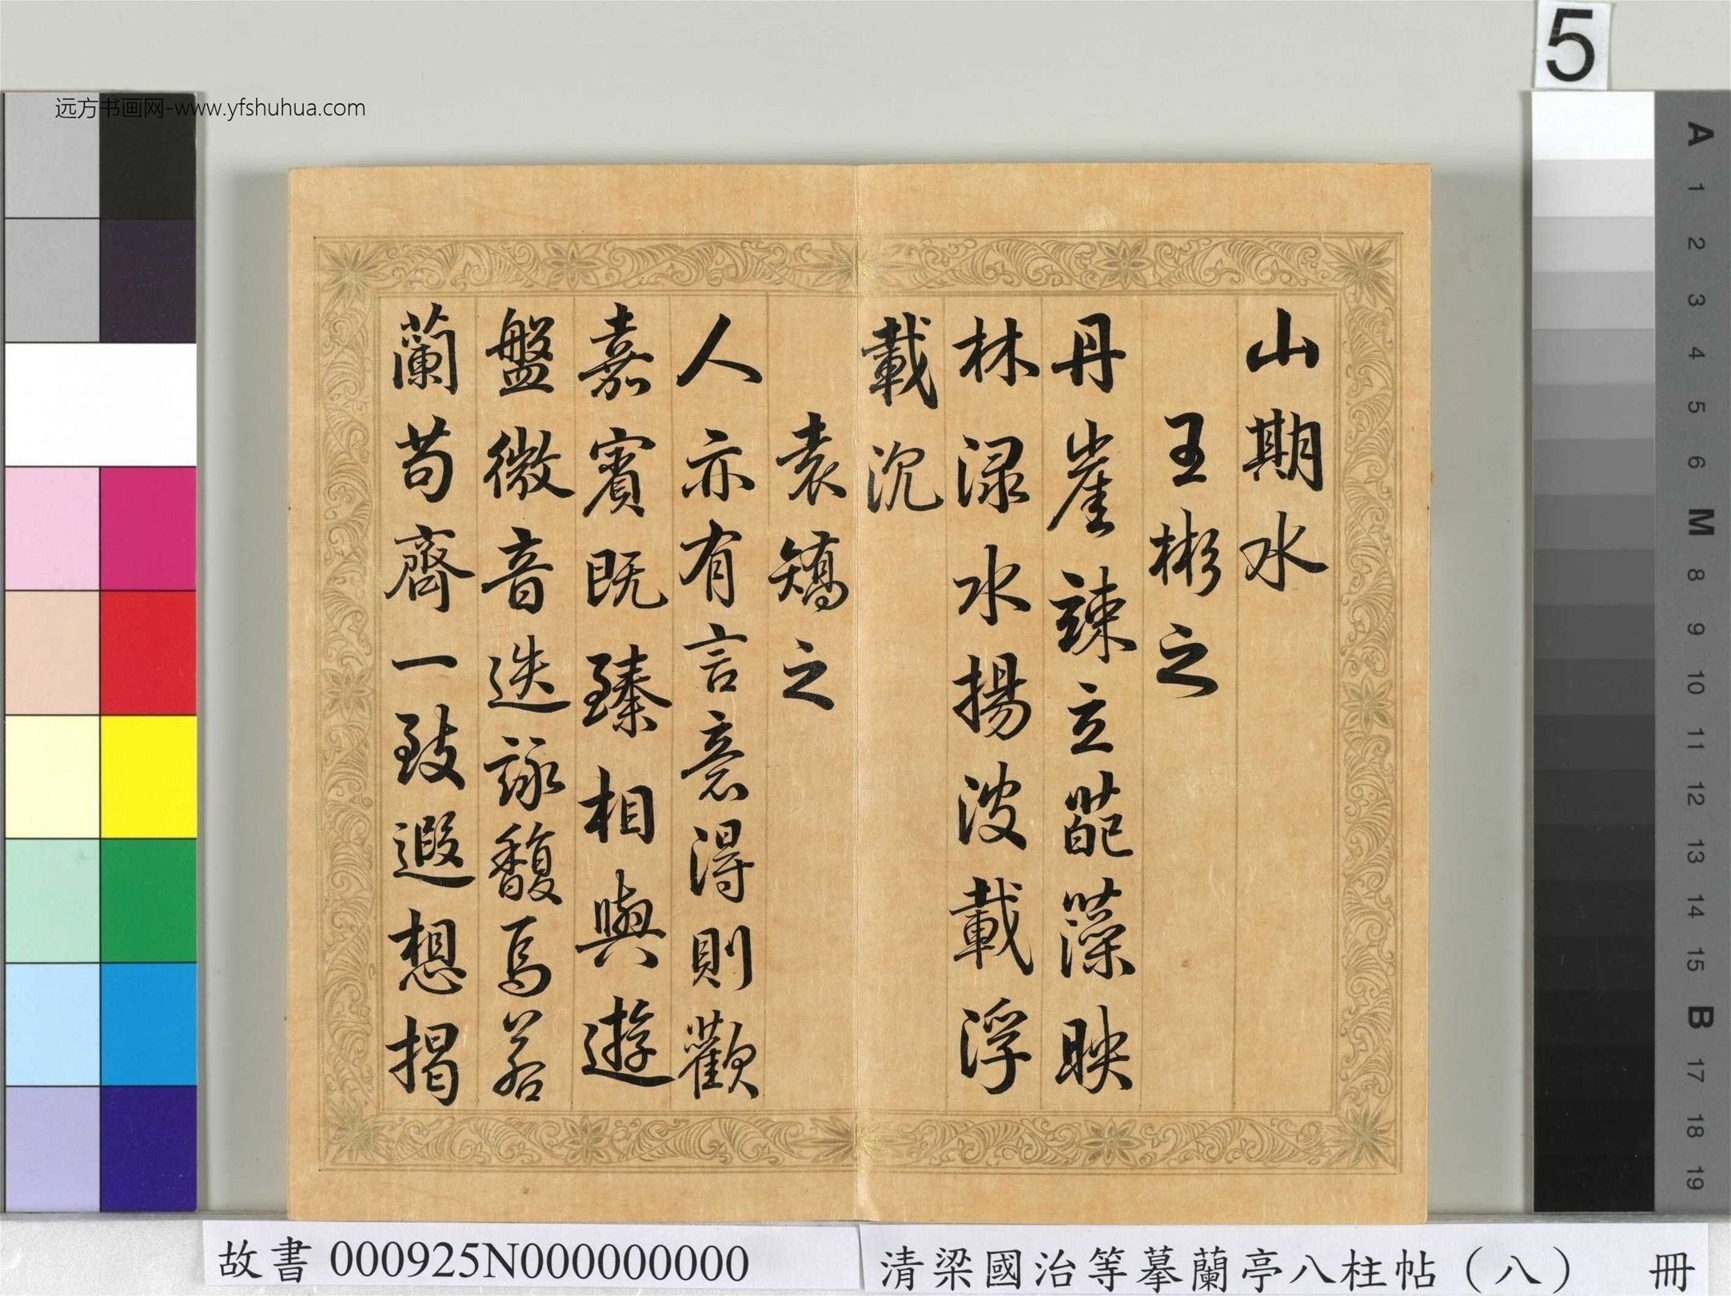 远方书画网-www.yfshuhua.com
5
山期水
王彬之
丹崖竦立葩藻映
林渌水揚波載浮
載沉
袁矯之
人亦有言意得則歡
嘉賓既臻相與遊
盤微音迭詠馥焉若
蘭苟齊一致遐想揭
A 1 2 3 4 5 6 M 8 9 10 11 12 13 14 15 B 17 18 19
故書 000925N000000000
清梁國治等摹蘭亭八柱帖（八） 冊